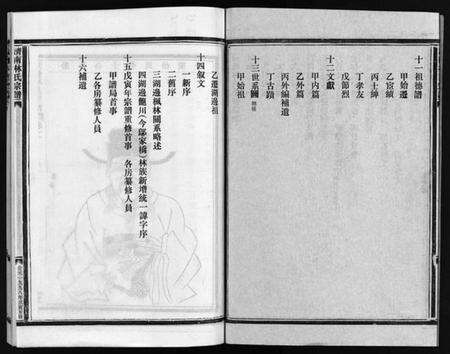 十一祖德譜
甲始遷
乙宦績
丙士紳
丁孝友
戊節烈
十二文獻
甲內篇
乙外篇
丙外編補遺
丁古蹟
十三世系圖
甲始祖
乙遷湖邊祖
十四叙文
一新序
二舊序
三湖邊楓林關系略述
四湖邊鮑川（今鄔家橋）林族新增統一諱字序
十五戊寅年宗譜重修首事 各房纂修人員
甲譜局首事
乙各房纂修人員
十六補遺
濟南林氏宗譜